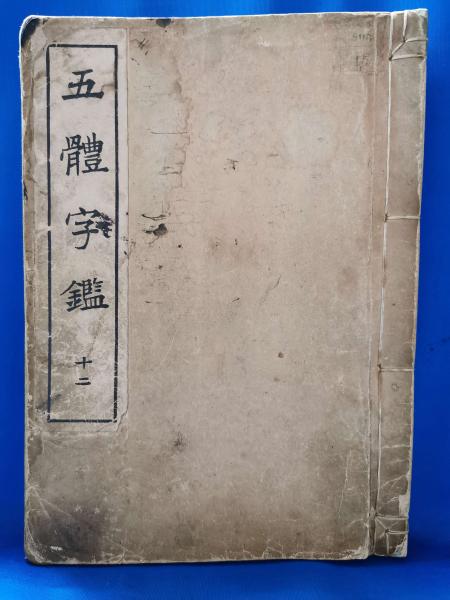 五體字鑑
十二